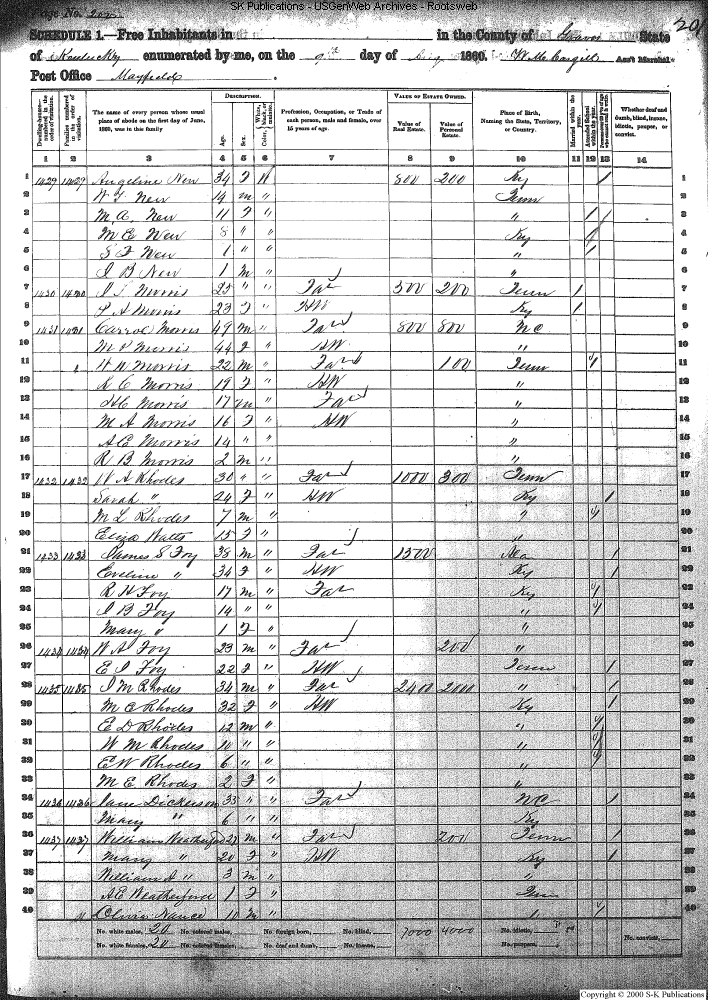 SK Publications - USGenWeb Archives - Rootsweb
Page No. 202
201
SCHEDULE 1.—Free Inhabitants in in the County of Graves State
of Kentucky enumerated by me, on the 9th day of Aug 1860. W. M. Cargill Ass't Marshal.
Post Office Mayfield
Dwelling-houses—numbered in the order of visitation.
Families numbered in the order of visitation.
The name of every person whose usual place of abode on the first day of June, 1860, was in this family
DESCRIPTION.
Age.
Sex.
Color, White, black, or mulatto.
Profession, Occupation, or Trade of each person, male and female, over 15 years of age.
VALUE OF ESTATE OWNED.
Value of Real Estate.
Value of Personal Estate.
Place of Birth, Naming the State, Territory, or Country.
Married within the year.
Attended School within the year.
Whether deaf and dumb, blind, insane, idiotic, pauper, or convict.
1 2 3 4 5 6 7 8 9 10 11 12 13 14
1 1429 1429 Angeline New 34 F W 800 200 Ky / 1
2 New 14 m " Tenn 2
3 M. A. New 11 F " " / / 3
4 M E New 8 " " Ky / 4
5 S F New 1 " " " / 5
6 J B New 1 m " " 6
7 1430 1430 J S Morris 25 " " Far 500 200 Tenn 1 7
8 S A Morris 23 F " HW Ky 1 8
9 1431 1431 Carrol Morris 49 m " Far 800 800 NC 9
10 Morris 44 F " HW " 10
11 H W Morris 22 m " Far 100 Tenn 11
12 Morris 19 F " HW " 12
13 Morris 17 m " Far " 13
14 M A Morris 16 F " HW " 14
15 A C Morris 14 " " " 15
16 R B Morris 2 m " " 16
17 1432 1432 W A Rhodes 30 " " Far 1000 300 Tenn 17
18 Sarah " 24 F " HW Ky / 18
19 M L Rhodes 7 m " " 19
20 Eliza Watts 15 F " " 20
21 1433 1433 James S Foy 38 m " Far 1500 / 21
22 Eveline " 34 F " HW Ky / 22
23 R H Foy 17 m " Far Ky 23
24 J B Foy 14 " " " 24
25 Mary " 1 F " " 25
26 1434 1434 W A Foy 23 m " Far 200 " 26
27 E J Foy 22 F " HW Tenn / 27
28 1435 1435 J M Rhodes 34 m " Far 2400 2000 " / 28
29 M C Rhodes 32 F " HW Ky / 29
30 E D Rhodes 12 m " " 30
31 W M Rhodes 10 " " " 31
32 E W Rhodes 6 " " " 32
33 M E Rhodes 2 F " " 33
34 1436 1436 Jane Dickerson 33 " " Far NC / 34
35 Mary " 6 " " Ky 35
36 1437 1437 William Weatherford 27 m " Far 200 Tenn / 36
37 Mary " 20 F " HW Ky / 37
38 William A " 3 m " " 38
39 A E Weatherford 1 F " Tenn 39
40 Nance 10 m " 40
No. white males, 20 No. colored males, No. foreign born, No. blind, 7000 4000 No. idiotic,
No. white females, 20 No. colored females, No. deaf and dumb, No. insane, No. paupers, No. convicts,
Copyright © 2000 S-K Publications